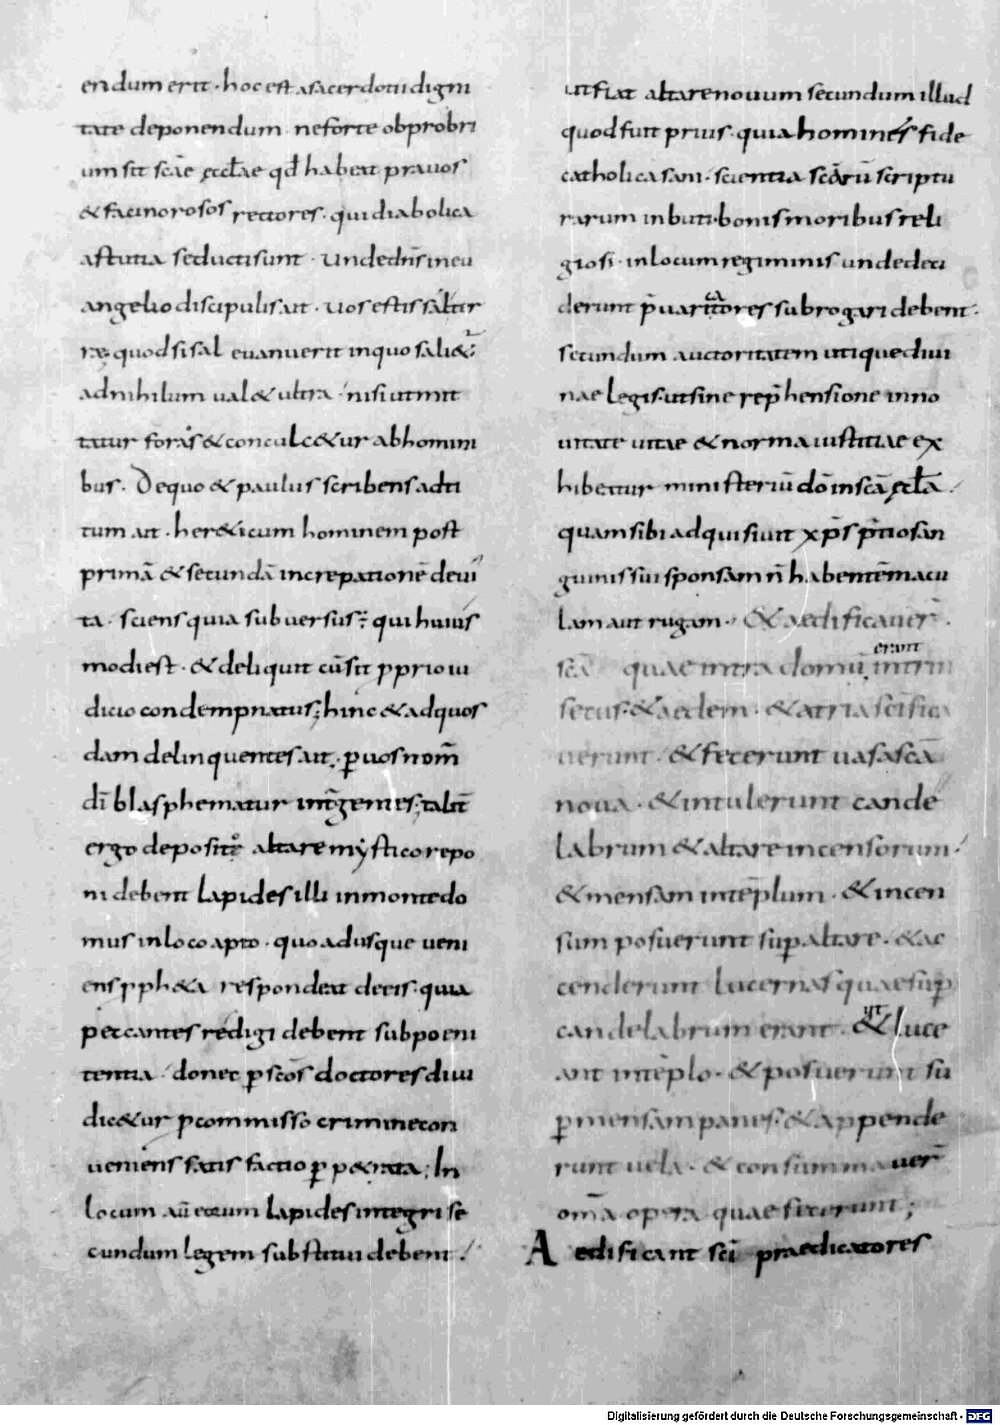 endum erit · hoc est a sacerdotii digni
tate deponendum · ne forte obprobri
um sit scāe ęccłae qđ habeat prauos
& facinorosos rectores · qui diabolica
astutia seducti sunt · Unde dn̄s in eu
angelio discipulis ait · uos estis sal ter
rae quod si sal euanuerit in quo sali&̄
ad nihilum ual& ultra · nisi ut mit
tatur foras & conculc&ur ab homini
bus · De quo & paulus scribens ad ti
tum ait · her&icum hominem post
primā & secundā increpationē deui
ta · sciens quia subuersus ÷ qui huius
modi est · & deliquit cū sit proprio iu
dicio condempnatus; hinc & ad quos
dam delinquentes ait · ꝑ uos nom̄
dī blasphematur int̄ gentes; taliť
ergo deposito altare mystico repo
ni debent lapides illi in monte do
mus in loco apto · quo adusque ueni
ens ꝓph&a respondeat de eis · quia
peccantes redigi debent sub poeni
tentia · donec ꝑ scōs doctores diiu
dic&ur ꝓ commisso crimine con
ueniens satisfactio ꝑp&rata; In
locum aū eorum lapides integri se
cundum legem substitui debent ·
ut fiat altare nouum secundum illud
quod fuit prius · quia homines fide
catholica sani · scientia scārū scriptu
rarum inbuti · bonis moribus reli
giosi · in locum regiminis unde deci
derunt p̄uaricatores subrogari debent ·
secundum auctoritatem utique diui
nae legis · ut sine rep̄hensione in no
uitate uitae & norma iustitiae ex
hibeatur ministeriū dō in scā ęcclā ·
quam sibi adquisiuit xp̄s p̄tio san
guinis sui sponsam n̄ habentē macu
lam aut rugam · & aedificauer̄
scā quae intra domū erant intrin
secus · & aedem · & atria scīfica
uerunt · & fecerunt uasa scā
noua · & intulerunt cande
labrum & altare incensorum ·
& mensam in tēplum · & incen
sum posuerunt suꝑ altare · & ac
cenderunt lucernas quae suꝑ
candelabrum erant · & ut luce
ant in tēplo · & posuerunt su
ꝑ mensam panes · & appende
runt uela · & consummauer̄
om̄a opera quae fecerunt;
Aedificant scī praedicatores
Digitalisierung gefördert durch die Deutsche Forschungsgemeinschaft - DFG